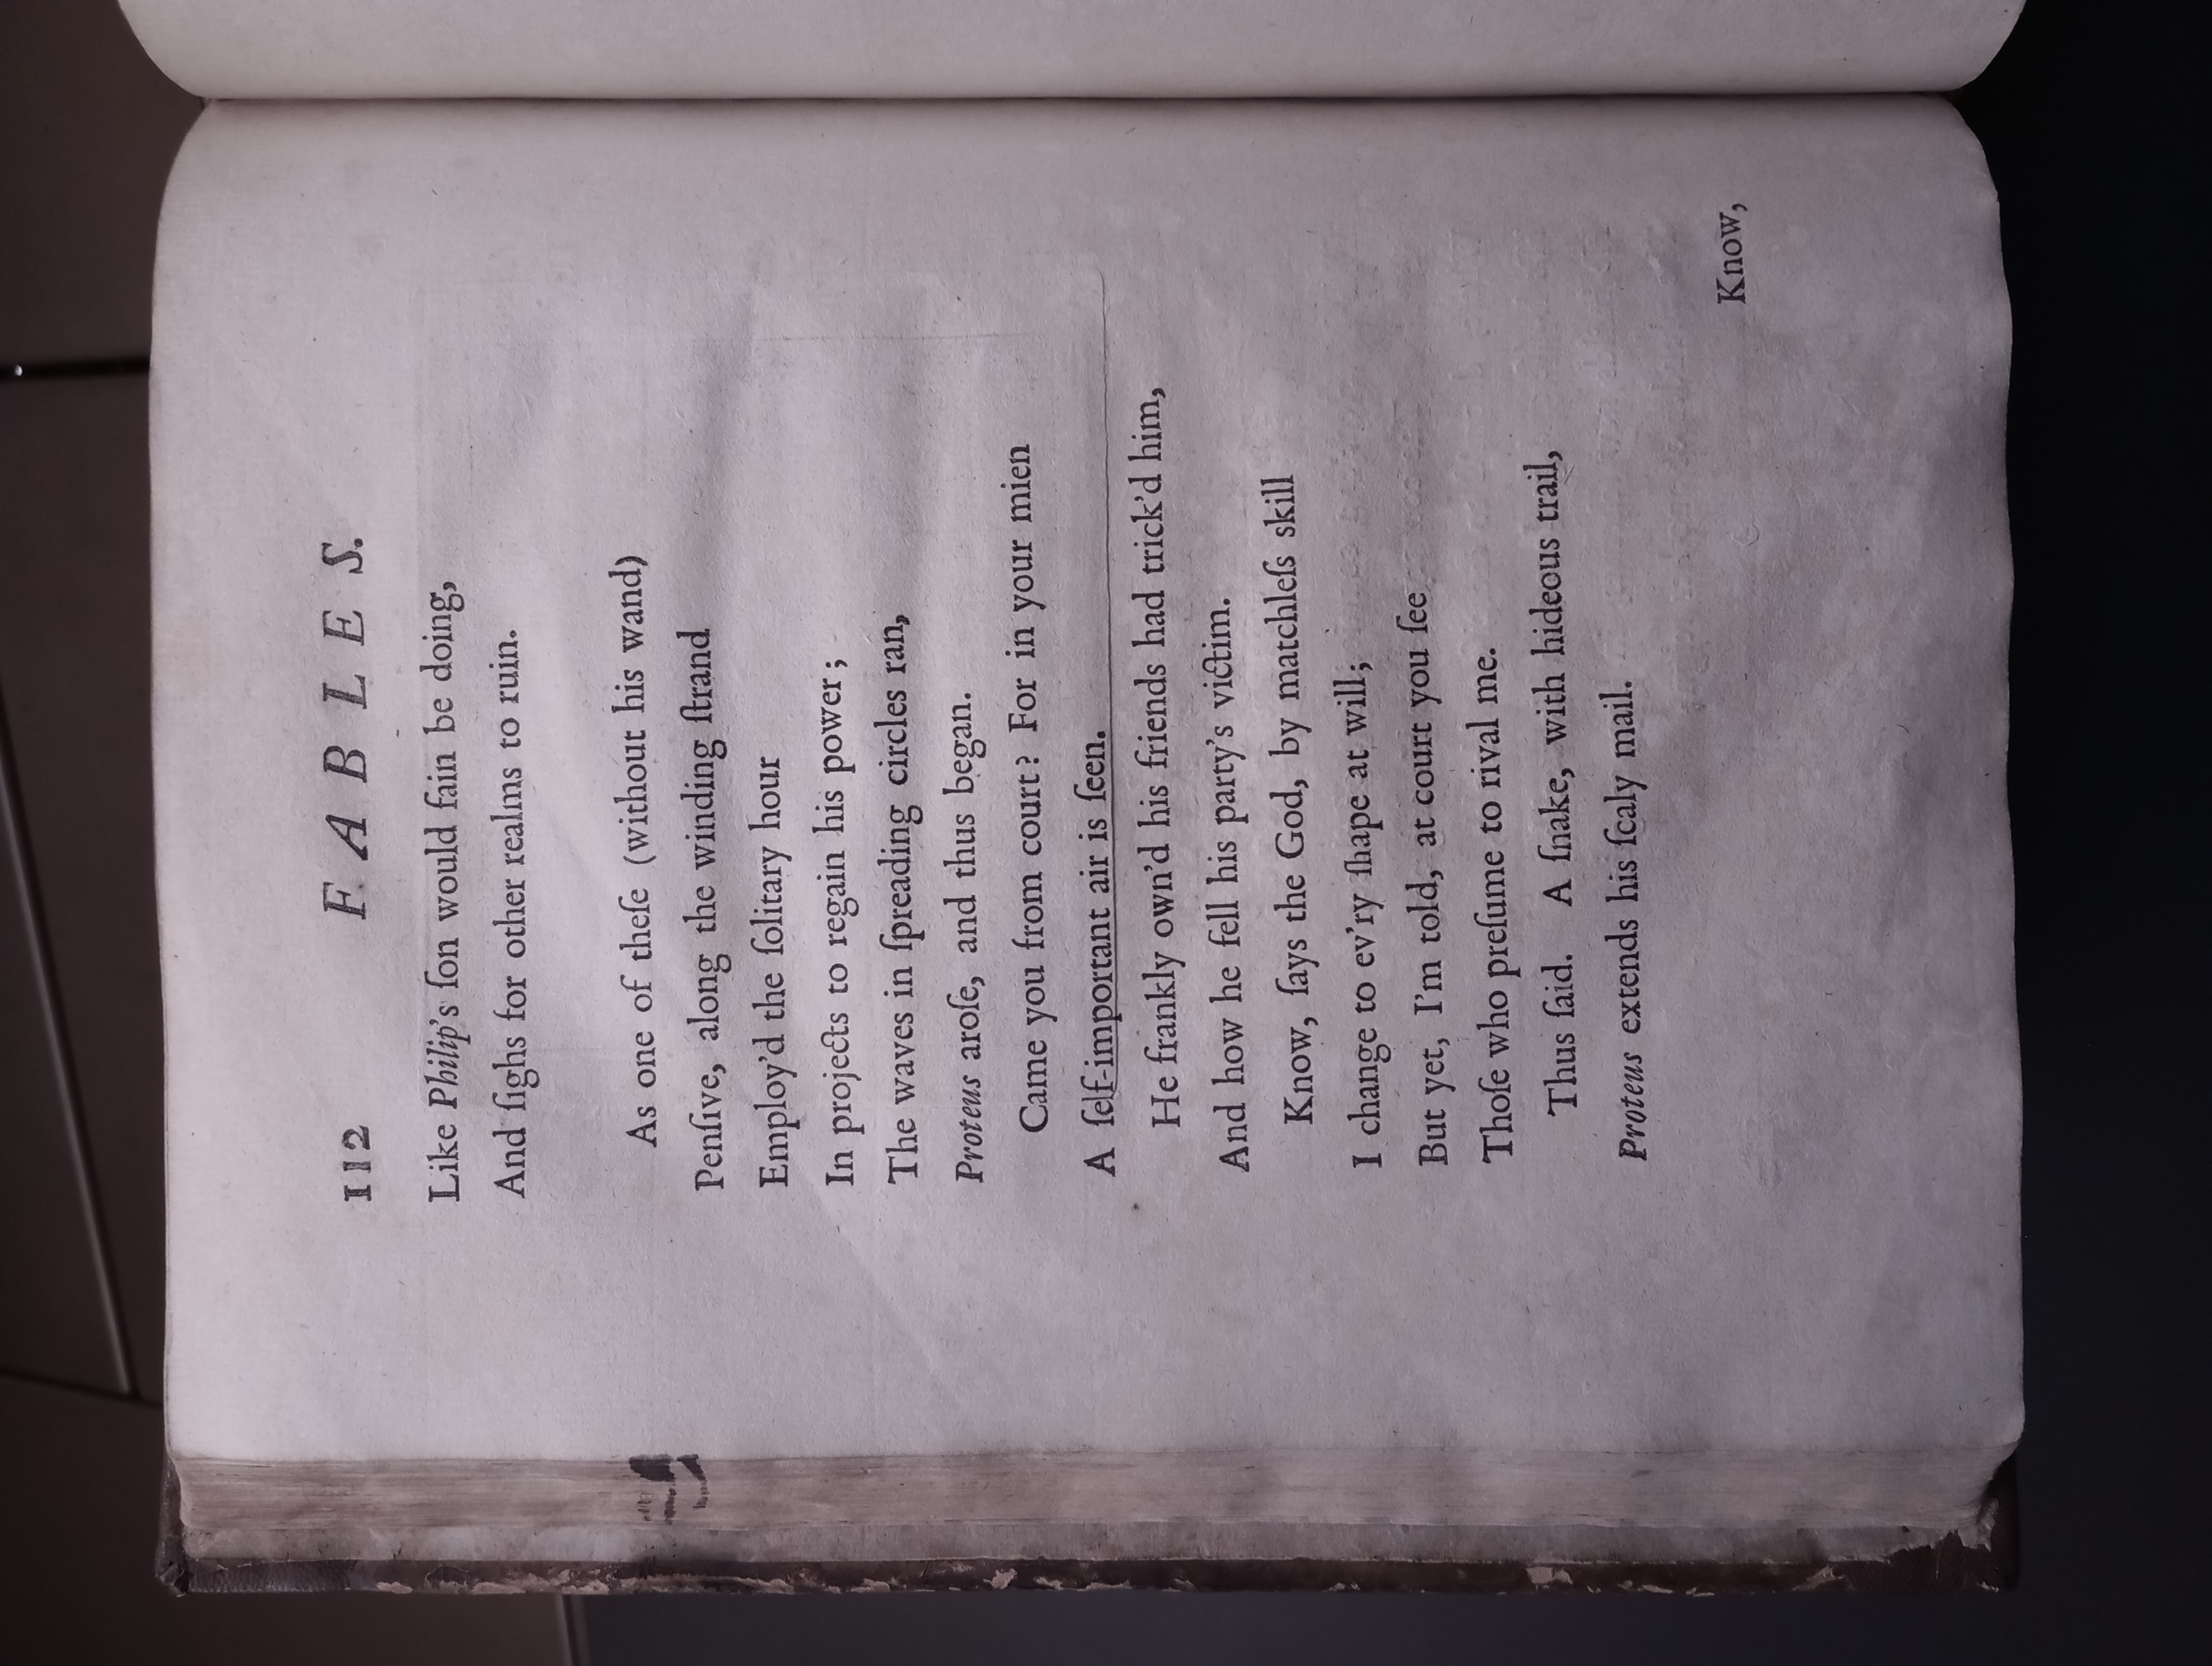 112 FABLES.
Like Philip's ſon would fain be doing,
And ſighs for other realms to ruin.
As one of theſe (without his wand)
Penſive, along the winding ſtrand
Employ'd the ſolitary hour
In projects to regain his power;
The waves in ſpreading circles ran,
Proteus aroſe, and thus began.
Came you from court? For in your mien
A ſelf-important air is ſeen.
He frankly own'd his friends had trick'd him,
And how he fell his party's victim.
Know, ſays the God, by matchleſs skill
I change to ev'ry ſhape at will;
But yet, I'm told, at court you ſee
Thoſe who preſume to rival me.
Thus ſaid. A ſnake, with hideous trail,
Proteus extends his ſcaly mail.
Know,